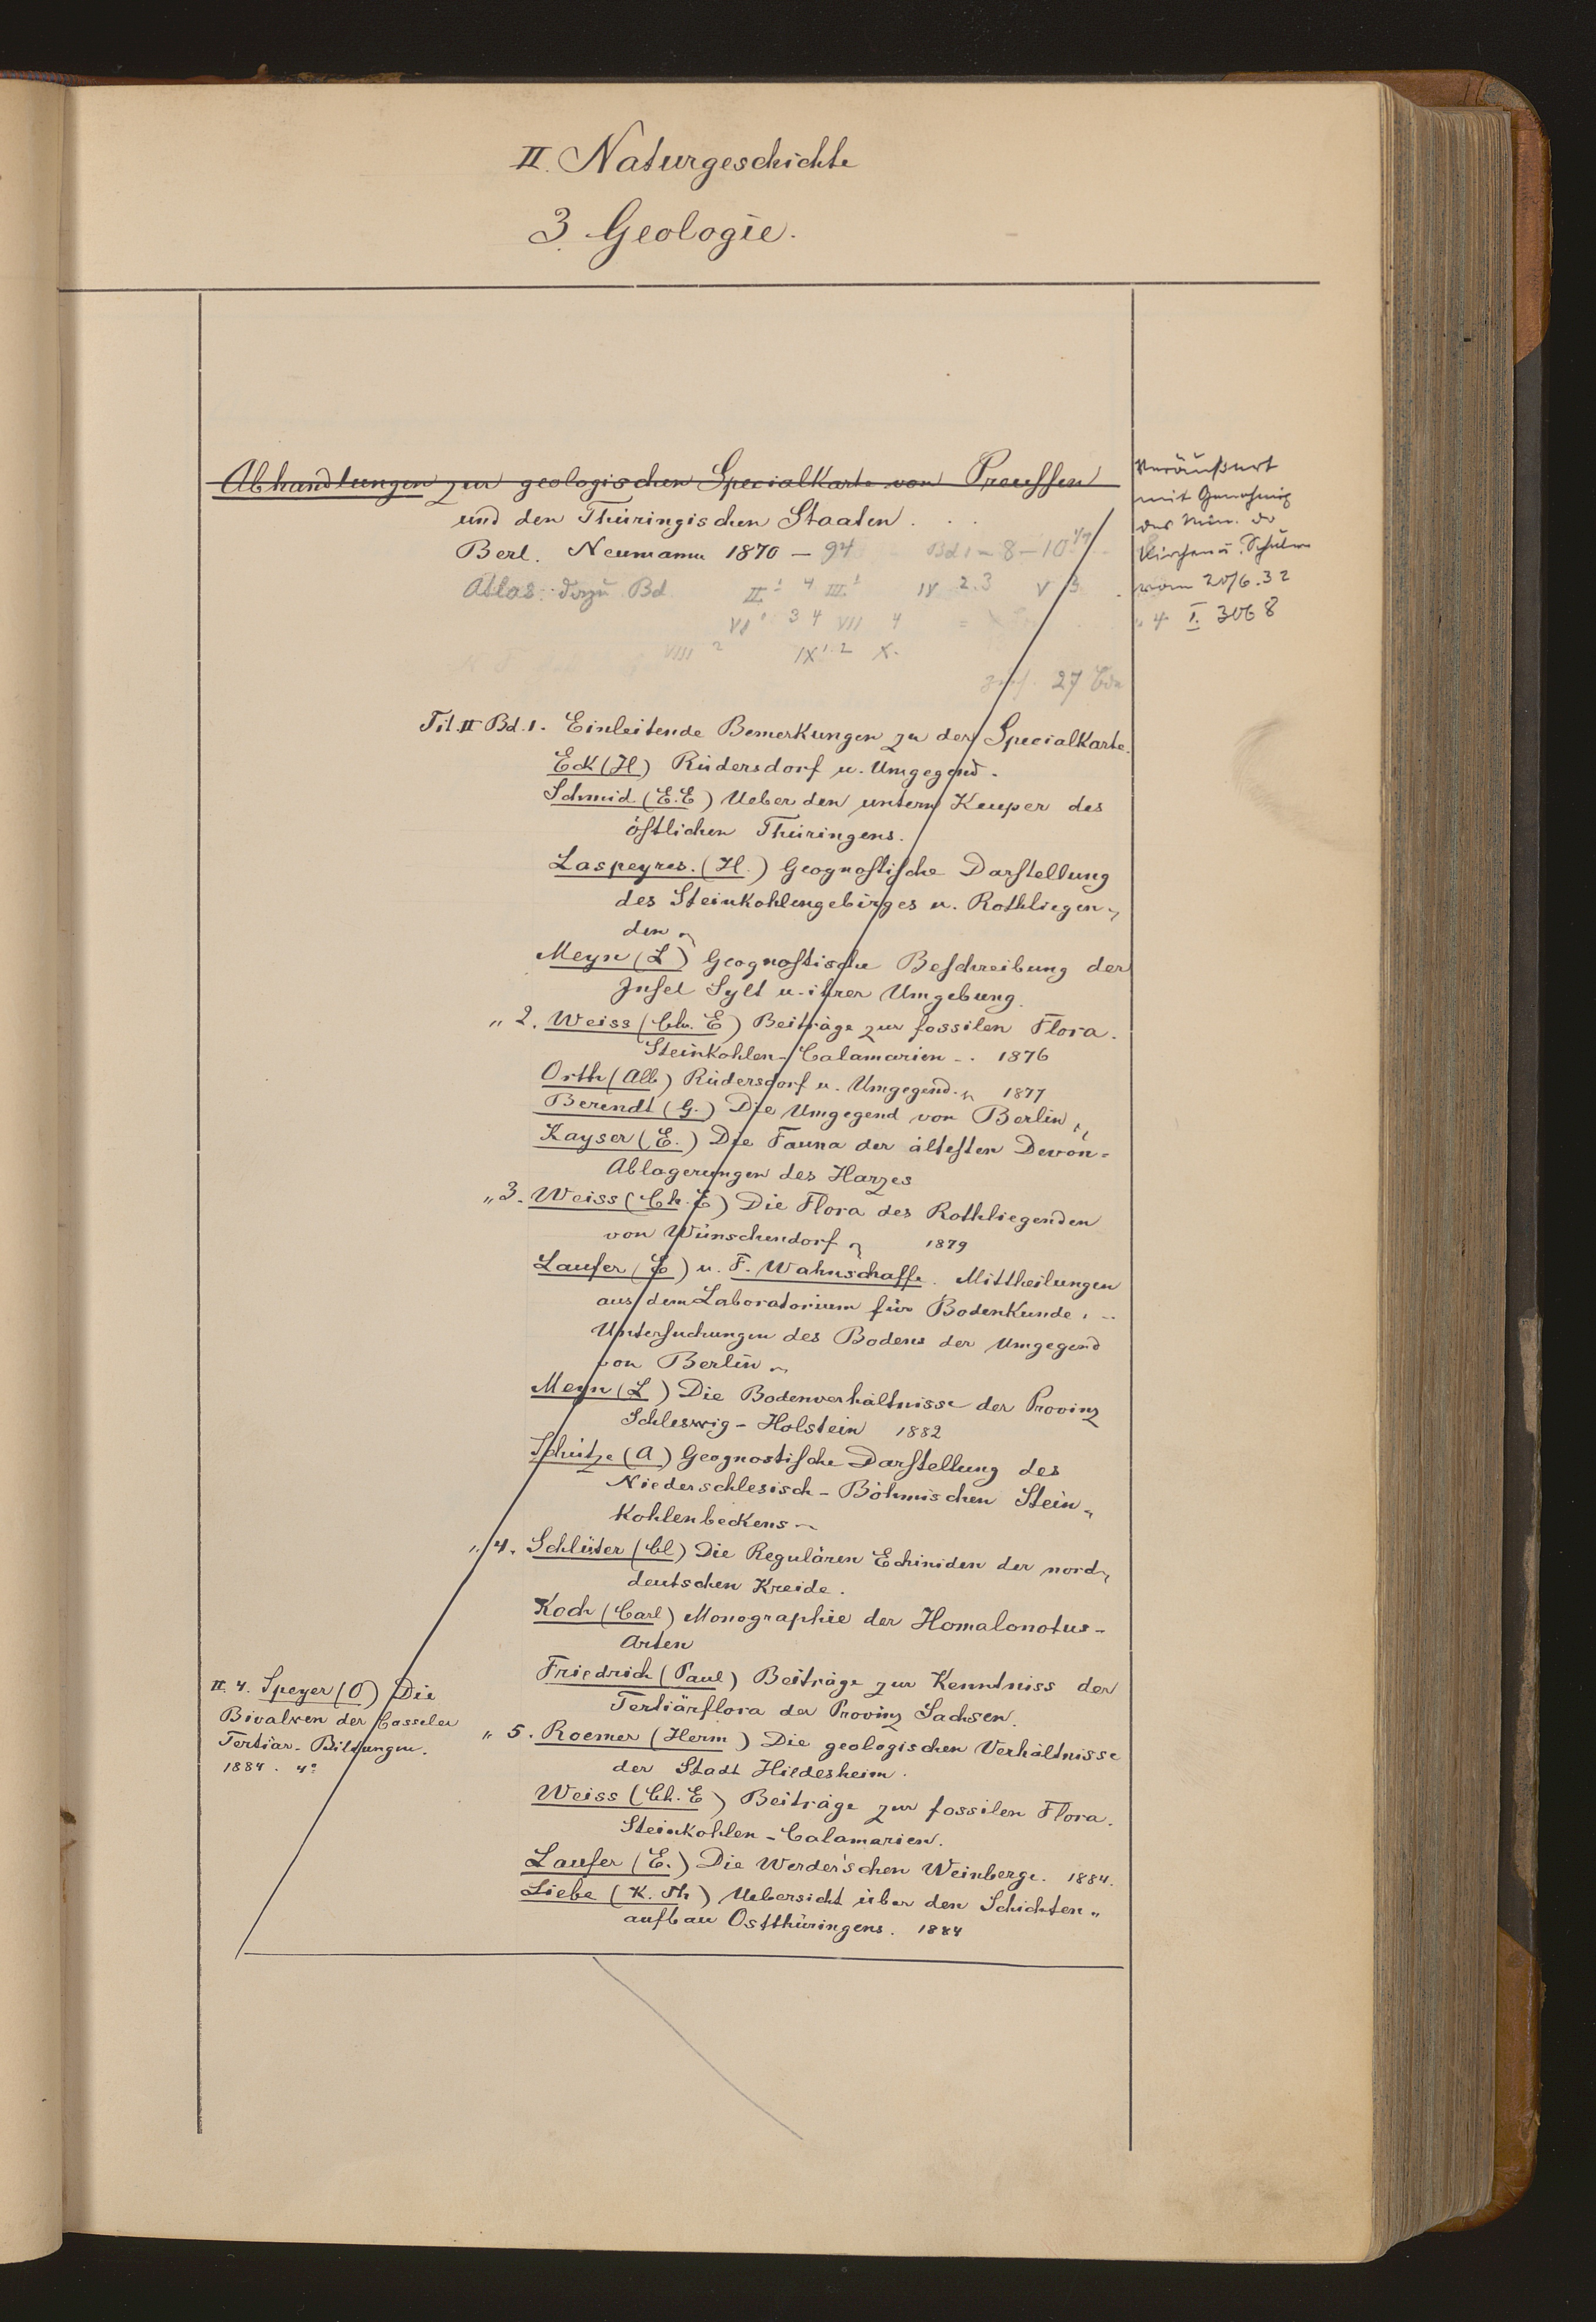 II. Naturgeschichte
3. Geologie.
Abhandlungen zur geologischen Specialkarte von Preussen
und den Thüringischen Staaten . . .
Berl. Neumann 1870 — 94 Bd 1 — 8 — 10
Atlas: dazu Bd. II 1 4 III 1 IV 2.3 V 3
VI 1 3 4 VII 4
VIII 2 IX 1.2 X.
27 Bde
Veräußert
mit Genehmig
des Min. der
Kirchen u. Schulen
vom 20/6.32
I. 3068
Til. II Bd. 1. Einleitende Bemerkungen zu der Specialkarte.
Eck (H) Rüdersdorf u. Umgegend.
Schmid (E.E) Ueber den untern Keuper des
östlichen Thüringens.
Laspeyres. (H.) Geognostische Darstellung
des Steinkohlengebirges u. Rothliegen-
den
Meyn (L) Geognostische Beschreibung der
Insel Sylt u. ihrer Umgebung.
" 2. Weiss (Ch. E) Beiträge zur fossilen Flora.
Steinkohlen-Calamarien . . 1876
Orth (Alb) Rüdersdorf u. Umgegend. 1877
Berendt (G.) Die Umgegend von Berlin
Kayser (E.) Die Fauna der ältesten Devon-
Ablagerungen des Harzes
" 3. Weiss (Ch. E) Die Flora des Rothliegenden
von Wünschendorf 1879
Laufer (E) u. F. Wahnschaffe. Mittheilungen
aus dem Laboratorium für Bodenkunde. ..
Untersuchungen des Bodens der Umgegend
von Berlin
Meyn (L) Die Bodenverhältnisse der Provinz
Schleswig-Holstein 1882
Schütze (A) Geognostische Darstellung des
Niederschlesisch-Böhmischen Stein-
Kohlenbeckens
" 4. Schlüter (Cl) Die Regulären Echiniden der nord-
deutschen Kreide.
Koch (Carl) Monographie der Homalonotus-
Arten
Friedrich (Paul) Beiträge zur Kenntniss der
Tertiärflora der Provinz Sachsen.
II. 4. Speyer (O) Die
Bivalven der Casseler
Tertiär-Bildungen.
1884. 4°
" 5. Roemer (Herm) Die geologischen Verhältnisse
der Stadt Hildesheim.
Weiss (Ch. E) Beiträge zur fossilen Flora.
Steinkohlen-Calamarien.
Laufer (E.) Die Werder'schen Weinberge. 1884.
Liebe (K. Th) Uebersicht über den Schichten-
aufbau Ostthüringens. 1884